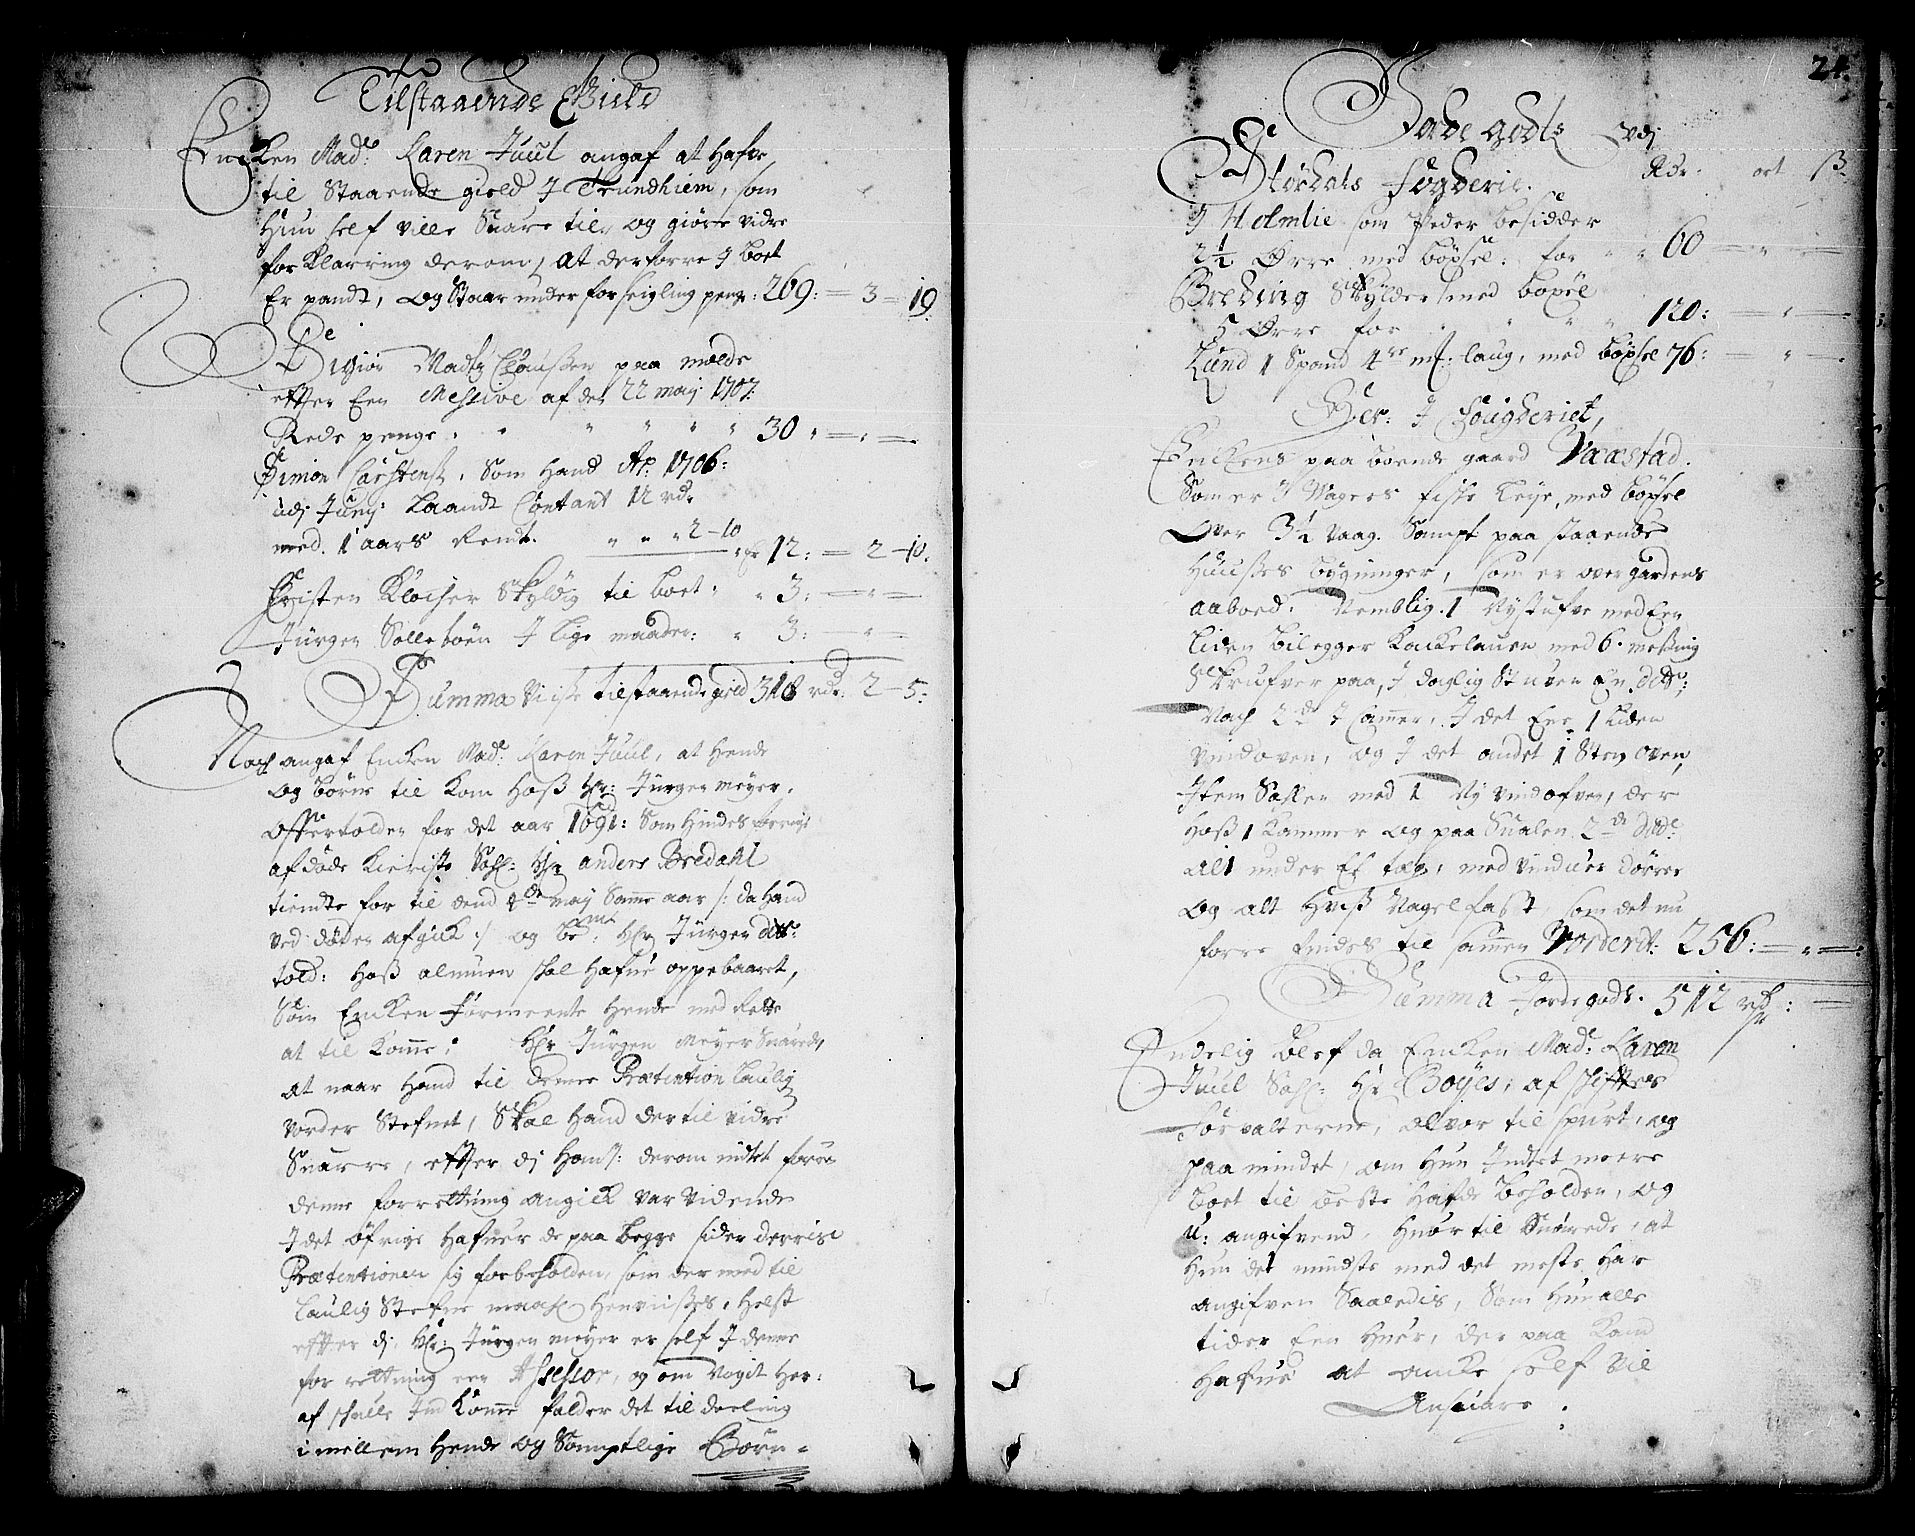 Tilstaaende Gield
Encken Mad: Karen Juul angaf at hafve
til Staaende gield J Trundhiem, som
Hun self ville Svare til, og giöre vidre
forklarring derom, at derforre J boet
Er pandt, og Staar under forseigling penge: 269: — 3 — 19
Sigr Madtz Clausen paa molde
effter Een Missive af den 22 maij 1707:
Rede penge " " " " " 30 " — " —
Simon Carstens. Som Hand Ap: 1706:
udj Junij Laandt Contant 12 rd.
med. 1 aars Rendt. " " " 2 — 10
Er 12: — 2 — 10.
Christen Klocher Skyldig til boet: " 3: — " —
Jürgen Solleböen J lige maader: " 3: — " —
Summa Visse tilstaaende gield 318 rdr: 2 — 5:
Noch angaf Encken Mad: Karen Juul, at hende
og börne til kom hoss Hr: Jürgen Meyer,
Offertolden for det aar 1691: Som Hindes forrige
afdöde Kieriste Sahl: Hr anders Bredahl
tiendte for til dend 4de maij Samme aar /: da Hand
ved döden afgick :/ og bemt: Hr Jürgen ditto:
told: hoss almuen skal Hafve oppebaaret,
Som Encken formeente Hende med Rette
at til komme: Hr Jürgen Meyer Svarede,
at naar Hand til denne Prætention Laulig
vorder Stefnet, Skal Hand dertil vidre
Svarre, effter dj Hans: derom intet forre
denne forrettning angick var vidende
J det öfrige Hafver de paa begge sider derris
Prætentioner sig forbeholden, som der med til
Laulig Stefne maal Henvisses, Helst
effter dj. Hr: Jürgen meyer er self J denne
for rettning een Assessor, og om Nogit Her:
af skulle Ind komme falder det til deeling
imellem Hende og Samptlige Börn-
24.
Jorde gods Udj
Stördals Fogderie. Rdr. ort ß
J Holmlie som Peder besidder
2½ Örre med böxsel: for " " 60 — " —
Breding Skylder med boxel
5 Örre for " " " " 120: — " —
Lund 1 Spand 4re mk: laug, med böxsel 76: — " —
Her: J Fougderiet,
Enckens paa boende gaard Vaagstad.
Som er J Wagers Fiske leye, med böxsel
Over 3½ vaag. Sampt paa staaende
Huusses bygninger, som er over gardens
aaboed. Nemblig. 1 Nystufve med Een
liden bilegger kackelauen med 6. messing
Skrufver paa, J daglig Stuven En ditto:
Noch 2de J Camer, J det Ene 1 liden
vindoven, og J det andet 1 Sten Oven,
Item Sallen med 1 Ny vindofven, der
Hoss 1 Kammer og paa Svalen 2de ditto
alt under Et tag, med vinduer dörrer
og alt Hvess Nagelfast, som det nu
forre findes til sammen Vorderit: 256: — " —
Summa Jordegods. 512 rdr: —
Endelig blef da Encken Mad: Karen
Juul Sahl: Hr Boyes, af skifftes
Forvalterne, alvor til spurt, og
paa mindet, om Hun Intet meere
boet til beste Hafde beholden, og
U: angifvend, Hvor til Svarede, at
Hun det mindste med det meste Har
angifven Saaledis, Som Hun alle
tider Een Hver, der paa Kand
Hafve at ancke self vil
Ansvare: